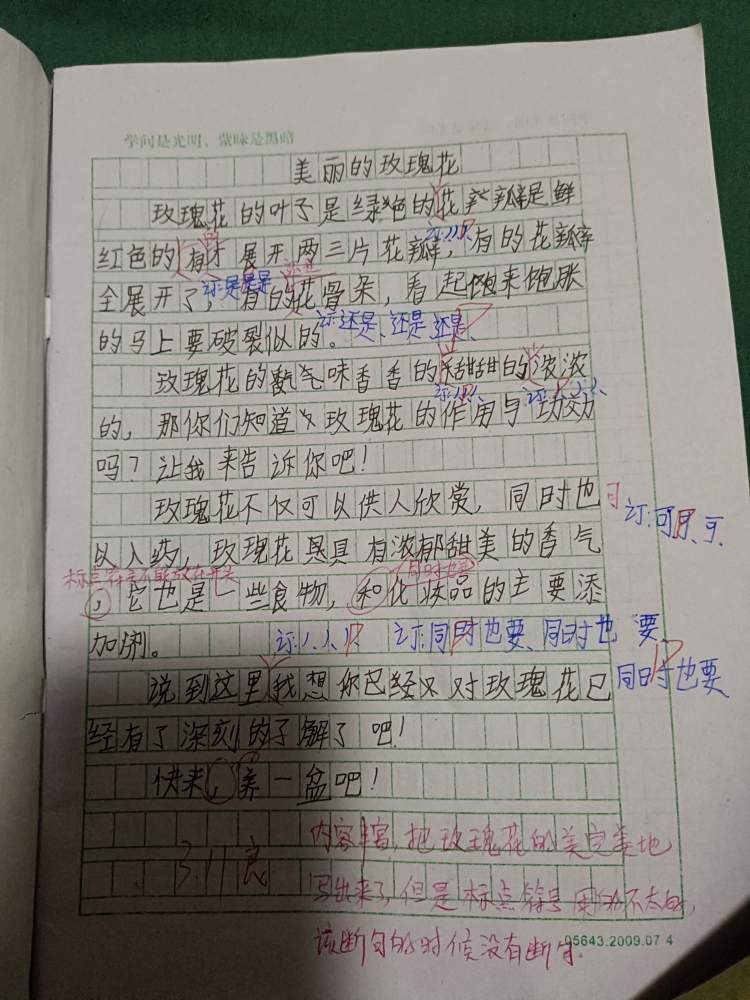 学问是光明，蒙昧是黑暗
美丽的玫瑰花
玫瑰花的叶子是绿色的花瓣是鲜
红色的有才展开两三片花瓣，有的花瓣
全展开了，有的花骨朵，看起来饱胀
订:是是是
还是
的马上要破裂似的。
订:还是、还是、还是、
玫瑰花的气味香香的甜甜的浓浓
的，那你们知道玫瑰花的作用与功效
吗？让我来告诉你吧！
玫瑰花不仅可以供人欣赏，同时也可
订:可、可、可、
以入药，玫瑰花具有浓郁甜美的香气
标点符号不能放在开头
同时也要
，它也是一些食物，和化妆品的主要添
加剂。
订:同时也要、同时也要、
同时也要
说到这里我想你已经对玫瑰花已
经有了深刻的了解了吧！
快来，养一盆吧！
内容丰富，把玫瑰花的美完美地
3.11 良
写出来了，但是标点符号用的不太好，
该断句的时候没有断句。
05643.2009.07 4